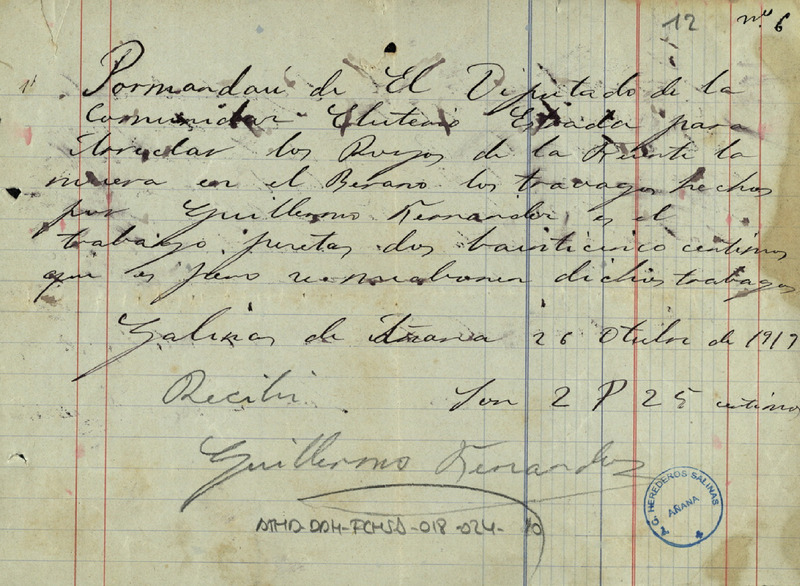 12 nº 6
Pormandau de El Diputado de la
Comunidar Eluterio Estrada para
los Royos de la Fuente la
muera en el Berano los travagos hechos
por Guillermo Fernandez es el
trabajo pesetas dos bainticinco centimos
que es dichos trabagos
Salinas de Añana 26 Otubre de 1917
Recibi Son 2 P 25 centimos
Guillermo Fernandez
ATHA-DDH-FCHSA-018-024-10
C. G. HEREDEROS SALINAS
AÑANA